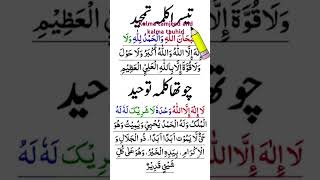 تیسرا کلمہ تمجید
kalma tamjeed and
kalma tauhid
سُبْحَانَ اللّٰهِ وَالْحَمْدُ لِلّٰهِ وَلَا
اِلٰهَ اِلَّا اللّٰهُ وَاللّٰهُ اَكْبَرُ وَلَا حَوْلَ
وَلَا قُوَّةَ اِلَّا بِاللّٰهِ الْعَلِيِّ الْعَظِيْمِ
چوتھا کلمہ توحید
لَا اِلٰهَ اِلَّا اللّٰهُ وَحْدَهٗ لَا شَرِيْكَ لَهٗ لَهُ
الْمُلْكُ وَلَهُ الْحَمْدُ يُحْيِيْ وَيُمِيْتُ وَهُوَ
حَيٌّ لَّا يَمُوْتُ اَبَدًا اَبَدًا، ذُو الْجَلَالِ وَ
الْاِكْرَامِ، بِيَدِهِ الْخَيْرُ، وَهُوَ عَلٰى كُلِّ
شَيْئٍ قَدِيْرٌ